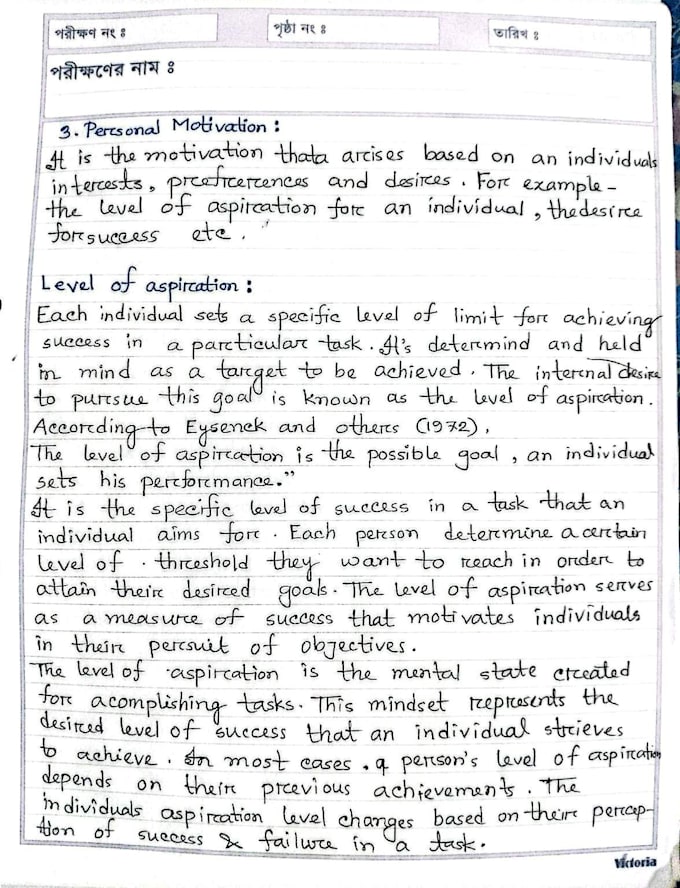 পরীক্ষণ নং ঃ
পৃষ্ঠা নং ঃ
তারিখ ঃ
পরীক্ষণের নাম ঃ
3. Personal Motivation :
It is the motivation thata arises based on an individuals
interests, preaficerences and desires. For example -
the level of aspiration for an individual, the desire
for success etc.
Level of aspiration :
Each individual sets a specific level of limit for achieving
success in a particular task. It's determind and held
in mind as a target to be achieved. The internal desire
to pursue this goal is known as the level of aspiration.
According to Eysenck and others (1972),
The level of aspiration is the possible goal, an individual
sets his performance."
It is the specific level of success in a task that an
individual aims for. Each person determine a certain
level of threshold they want to reach in order to
attain their desired goals. The level of aspiration serves
as a measure of success that motivates individuals
in their persuit of objectives.
The level of aspiration is the mental state created
for acomplishing tasks. This mindset represents the
desired level of success that an individual strieves
to achieve. In most cases, a person's level of aspiration
depends on their previous achievements. The
individuals aspiration level changes based on their percep-
tion of success & failure in a task.
Victoria